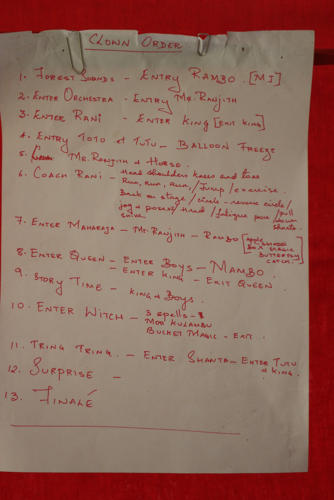 CLOWN ORDER
1. FOREST SOUNDS - ENTRY RAMBO. [MJ]
2. ENTER ORCHESTRA - ENTRY MR. RANJITH
3. ENTER RANI - ENTER KING [EXIT KING]
4. ENTRY TOTO & TUTU - BALLOON FREEZE
5. MR. RANJITH & HORSE.
6. COACH RANI - Head shoulders knees and toes
Run, run, run, / Jump / exercise
Back on stage / circle - reverse circle /
jog & poses / head / fatigue pose / pull
down
shorts.
7. ENTER MAHARAJA - MR. RANJITH - RAMBO [
BOX MAGIC
BUTTERFLY
CATCH.]
8. ENTER QUEEN - ENTER BOYS - MAMBO
- ENTER KING - EXIT QUEEN.
9. STORY TIME - KING & BOYS.
10. ENTER WITCH - 3 spells -
MOR KULAMBU
BUCKET MAGIC - EXIT.
11. TRING TRING. - ENTER SHANTA - ENTER TUTU
& KING.
12. SURPRISE -
13. FINALÉ